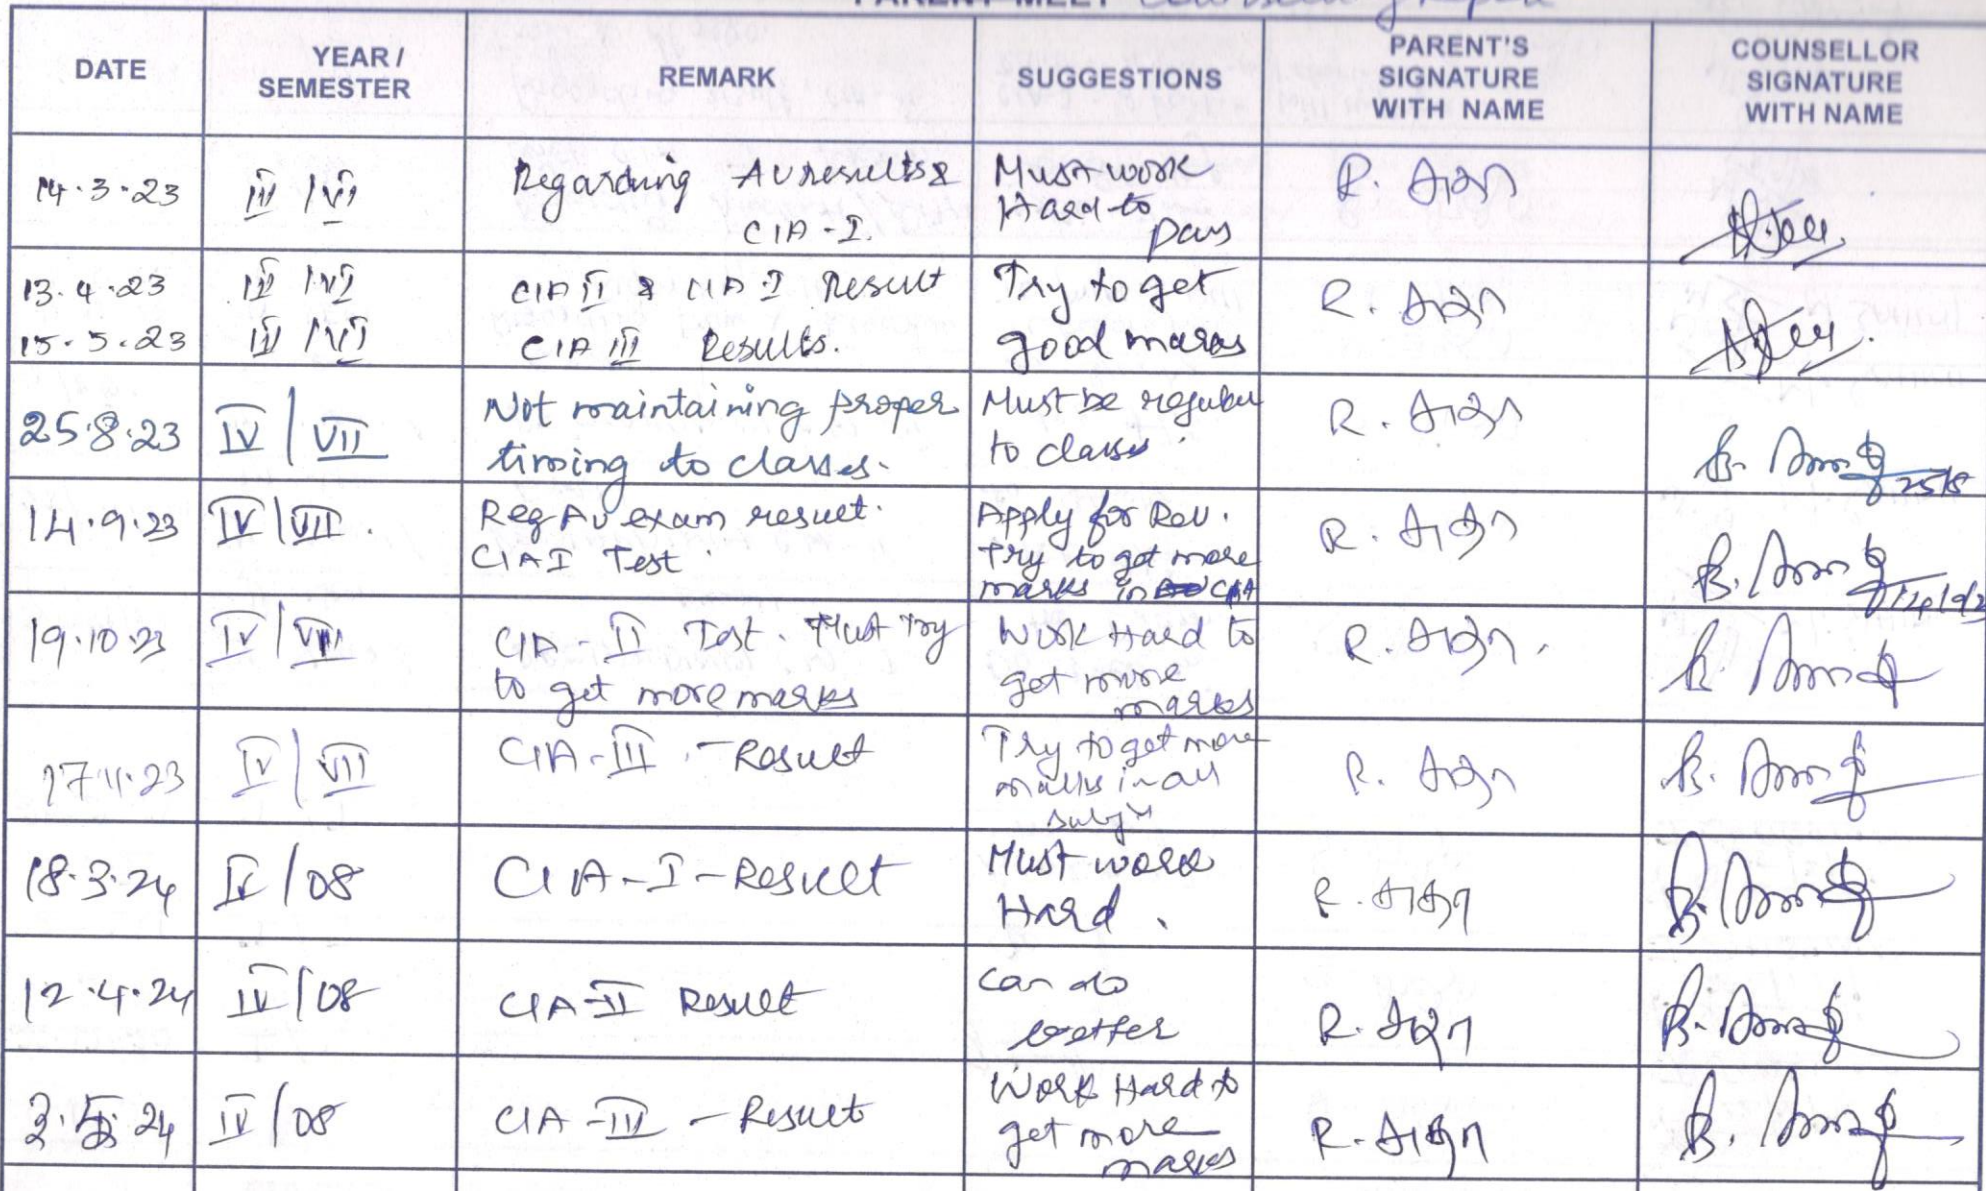 PARENT MEET
DATE
YEAR /
SEMESTER
REMARK
SUGGESTIONS
PARENT'S
SIGNATURE
WITH NAME
COUNSELLOR
SIGNATURE
WITH NAME
14.3.23
III / VI
Regarding AU results &
CIA - I.
Must work
Hard to
pass
R.
13.4.23
III / VI
CIA II & CIA I Result
Try to get
R.
15.5.23
III / VI
CIA III Results.
good marks
25.8.23
IV / VII
Not maintaining proper
timing to classes.
Must be regular
to classes.
R.
25/8
14.9.23
IV / VII.
Reg AU exam result.
CIA I Test.
Apply for Rev.
Try to get more
marks in CIA
R.
19.10.23
IV / VII
CIA - II Test. Must Try
to get more marks
Work Hard to
get more
marks
R.
17.11.23
IV / VII
CIA - III - Result
Try to get more
marks in all
R.
18.3.24
IV / 08
CIA - I - Result
Must work
Hard.
R.
12.4.24
IV / 08
CIA - II Result
Can do
better
R.
IV / 08
CIA - III - Result
Work Hard to
get more
marks
R.